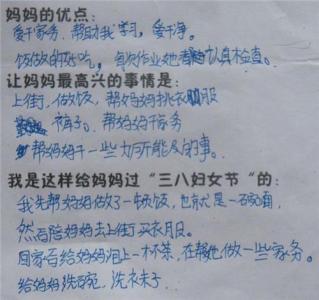 妈妈的优点:
爱干家务、帮助我学习,爱干净。
饭做的好吃。每次作业她都认真检查。
让妈妈最高兴的事情是:
上街、做饭,帮妈妈挑衣服
裤子。帮妈妈干家务
帮妈妈干一些力所能及的事。
我是这样给妈妈过“三八妇女节”的:
我先帮妈妈做了一顿饭,也就是一碗面,
然后陪妈妈去上街买衣服。
回家后给妈妈泡上一杯茶,在帮她做一些家务。
给妈妈洗碗,洗衣服